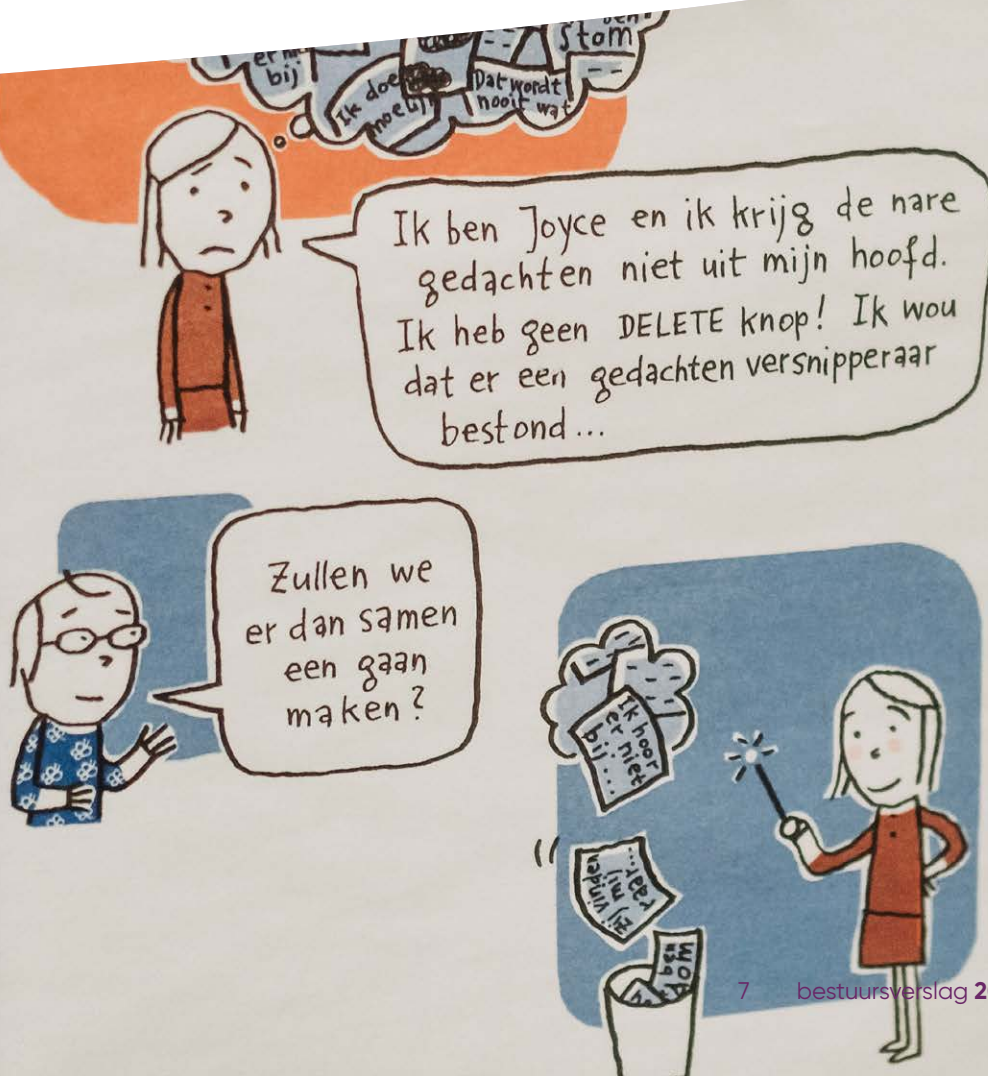 stom
er
bij
Ik doe
moeilij
Dat wordt
nooit wat
Ik ben Joyce en ik krijg de nare
gedachten niet uit mijn hoofd.
Ik heb geen DELETE knop! Ik wou
dat er een gedachten versnipperaar
bestond...
Zullen we
er dan samen
een gaan
maken?
Ik hoor
er niet
bij...
zij vinden
mij
raar...
7 bestuursverslag 2